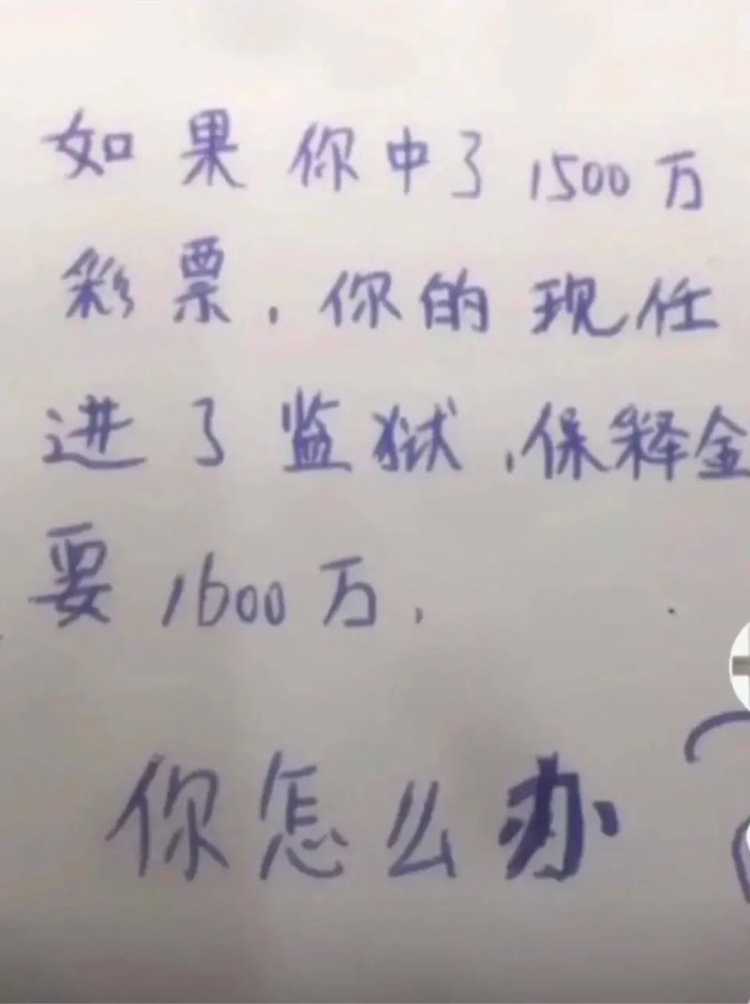 如果你中了1500万
彩票，你的现任
进了监狱，保释金
要1600万，
你怎么办